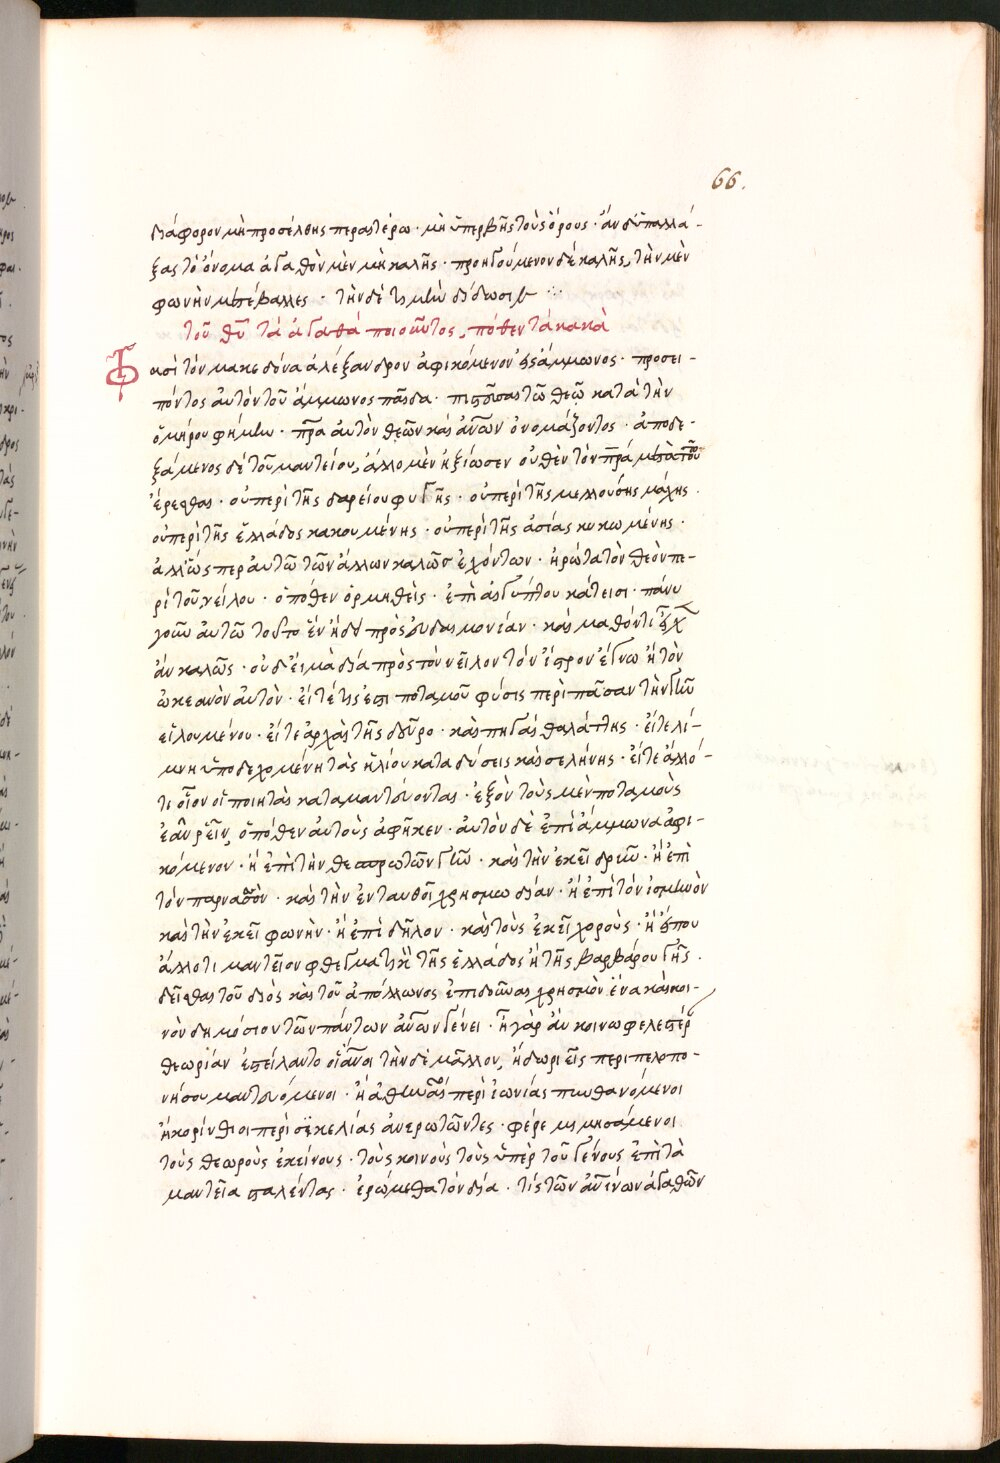 66.
διάφορον μὴ προσέλθῃς περαιτέρω · μὴ ὑπερβῇς τοὺς ὅρους · ἂν δ' ὑπαλλά-
ξας τὸ ὄνομα ἀγαθὸν μὲν μὴ καλῇς · προηγούμενον δὲ καλῇς, τὴν μὲν
φωνὴν μετέβαλλες · τὴν δὲ τιμὴν δίδωσιν
τοῦ θῦ τὰ ἀγαθὰ ποιοῦντος, πόθεν τὰ κακὰ
Φασὶ τὸν μακεδόνα ἀλέξανδρον ἀφικόμενον εἰς ἄμμωνος · προσει-
πόντος αὐτὸν τοῦ ἄμμωνος παῖδα · πιστεῦσαι τῷ θεῷ κατὰ τὴν
ὁμήρου φήμην · πρα αὐτὸν θεῶν καὶ ἀνῶν ὀνομάζοντος · ἀποδε-
ξάμενος δὲ τοῦ μαντείου, ἄλλο μὲν ἠξίωσεν οὐθὲν τὸν πρα μετὰ τοῦ
ἐρέσθαι · οὐ περὶ τῆς δαρείου φυγῆς · οὐ περὶ τῆς μελλούσης μάχης ·
οὐ περὶ τῆς ἑλλάδος κακουμένης · οὐ περὶ τῆς ἀσίας κυκωμένης ·
ἀλλ' ὥσπερ αὐτῷ τῶν ἄλλων καλῶς ἐχόντων · ἠρώτα τὸν θεὸν πε-
ρὶ τοῦ νείλου · ὁπόθεν ὁρμηθεὶς · ἐπὶ αἴγυπτον κάτεισι · πάνυ
γοῦν αὐτῷ τοῦτο ἓν ἤδει πρὸς εὐδαιμονίαν · καὶ μαθόντι
ἂν καλῶς · οὐδ' εἰ μὰ δία πρὸς τὸν νεῖλον τὸν ἴστρον ἔγνω ἢ τὸν
ὠκεανὸν αὐτὸν · εἴτέ τις ἐστι ποταμοῦ φύσις περὶ πᾶσαν τὴν γῆν
εἰλουμένου · εἴτε ἀρχαὶ τῆς δεῦρο · καὶ πηγαὶ θαλάττης · εἴτε λί-
μνη ὑποδεχομένη τὰς ἡλίου καταδύσεις καὶ σελήνης · εἴτε ἄλλό
τι οἷον οἱ ποιηταὶ καταμαντεύονται · ἐξὸν τοὺς μὲν ποταμοὺς
ἐᾶν ῥεῖν, ὁπόθεν αὐτοὺς ἀφῆκεν · αὐτὸν δὲ ἐπὶ ἄμμωνα ἀφι-
κόμενον · ἢ ἐπὶ τὴν θεσπρωτῶν γῆν · καὶ τὴν ἐκεῖ δρῦν · ἢ ἐπὶ
τὸν παρνασὸν · καὶ τὴν ἐνταυθοῖ χρησμῳδίαν · ἢ ἐπὶ τὸν ἰσμηνὸν
καὶ τὴν ἐκεῖ φωνὴν · ἢ ἐπὶ δῆλον · καὶ τοὺς ἐκεῖ χοροὺς · ἢ εἴ που
ἄλλο τι μαντεῖον φθεγματικὸν τῆς ἑλλάδος ἢ τῆς βαρβάρου γῆς ·
δεῖσθαι τοῦ διὸς καὶ τοῦ ἀπόλλωνος ἐπιδοῦναι χρησμὸν ἕνα καὶ κοι-
νὸν δημόσιον τῶν πάντων ἀνῶν γένει · ἦ γὰρ ἂν κοινωφελεστέραν
θεωρίαν ἐστείλαντο οἱ ἄνοι τὴν δὲ μᾶλλον, ἢ δωριεῖς περὶ πελοπο-
νήσου μαντευόμενοι · ἢ ἀθηναῖοι περὶ ἰωνίας πυνθανόμενοι
ἢ κορίνθιοι περὶ σικελίας ἀνερωτῶντες · φέρε μιμησάμενοι
τοὺς θεωροὺς ἐκείνους · τοὺς κοινοὺς τοὺς ὑπὲρ τοῦ γένους ἐπὶ τὰ
μαντεῖα σταλέντας · ἐρώμεθα τὸν δία · τίς τῶν ἀνίνων ἀγαθῶν